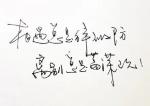 相遇总是猝不及防
离别总是蓄谋已久！